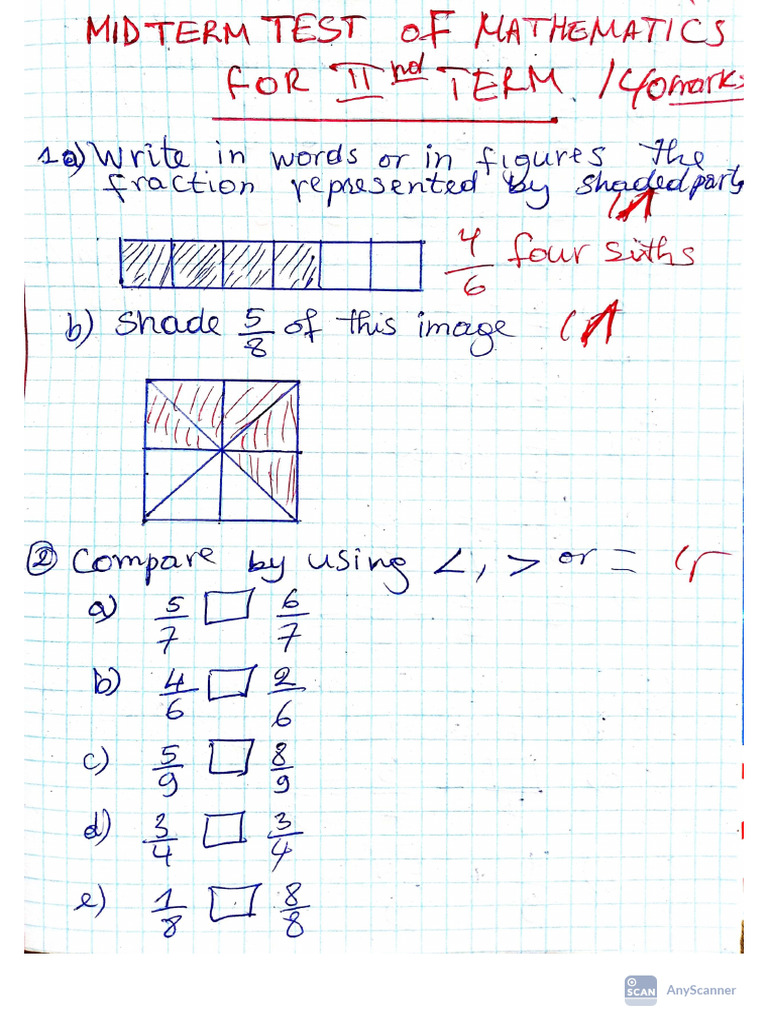 MIDTERM TEST OF MATHEMATICS
FOR IInd TERM. /40marks
1a) Write in words or in figures the
fraction represented by shaded parts
4/6 four sixths
b) Shade 5/8 of this image
② Compare by using <, > or =
a) 5/7 □ 6/7
b) 4/6 □ 2/6
c) 5/9 □ 8/9
d) 3/4 □ 3/4
e) 1/8 □ 8/8
SCAN AnyScanner